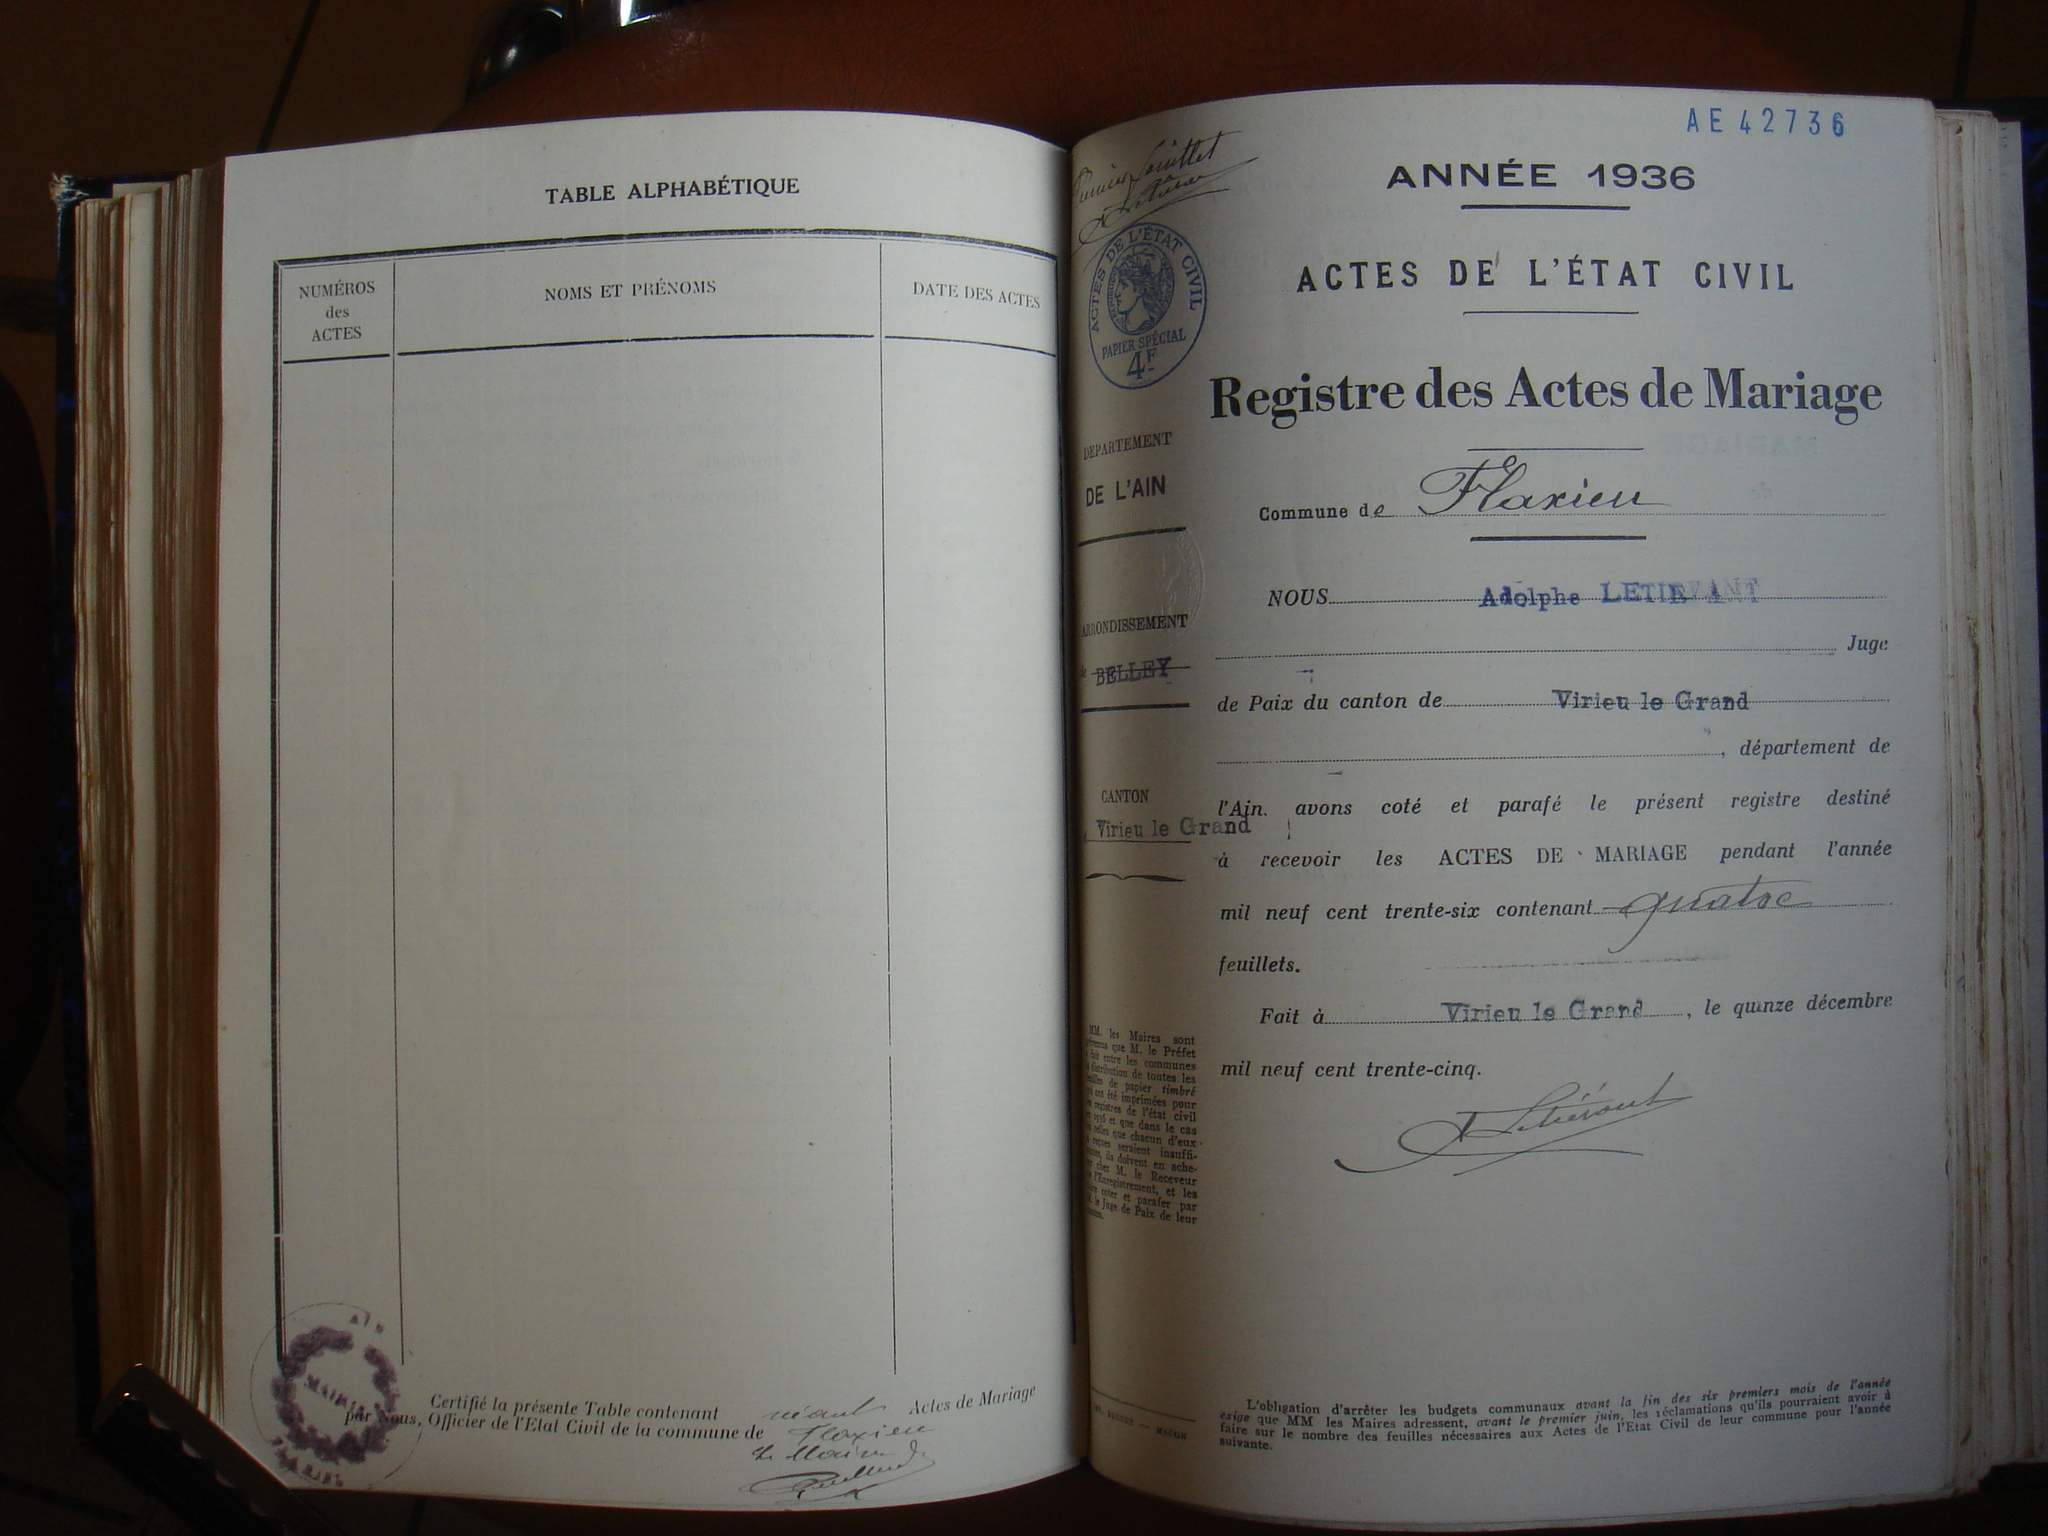 TABLE ALPHABÉTIQUE
NUMÉROS
des
ACTES
NOMS ET PRÉNOMS
DATE DES ACTES
AIN
MAIRIE
Certifié la présente Table contenant néant Actes de Mariage
par Nous, Officier de l'Etat Civil de la commune de Flaxieu
Le Maire
AE 42736
Premier feuillet
ANNÉE 1936
ACTES DE L'ÉTAT CIVIL
ACTES DE L'ÉTAT CIVIL
PAPIER SPÉCIAL
4F
Registre des Actes de Mariage
DÉPARTEMENT
DE L'AIN
Commune de Flaxieu
ARRONDISSEMENT
de BELLEY
CANTON
Virieu le Grand
NOUS Adolphe LETIEVANT
Juge
de Paix du canton de Virieu le Grand
, département de
l'Ain. avons coté et parafé le présent registre destiné
à recevoir les ACTES DE MARIAGE pendant l'année
mil neuf cent trente-six contenant quatre
feuillets.
Fait à Virieu le Grand, le quinze décembre
mil neuf cent trente-cinq.
MM. les Maires sont
que M. le Préfet
fait entre les communes
distribution de toutes les
de papier timbré
ont été imprimées pour
registres de l'état civil
1936 et que dans le cas
celles que chacun d'eux
reçues seraient insuffi-
ils doivent en ache-
chez M. le Receveur
l'Enregistrement, et les
coter et parafer par
le Juge de Paix de leur
L'obligation d'arrêter les budgets communaux avant la fin des six premiers mois de l'année
exige que MM les Maires adressent, avant le premier juin, les réclamations qu'ils pourraient avoir à
faire sur le nombre des feuilles nécessaires aux Actes de l'Etat Civil de leur commune pour l'année
suivante.